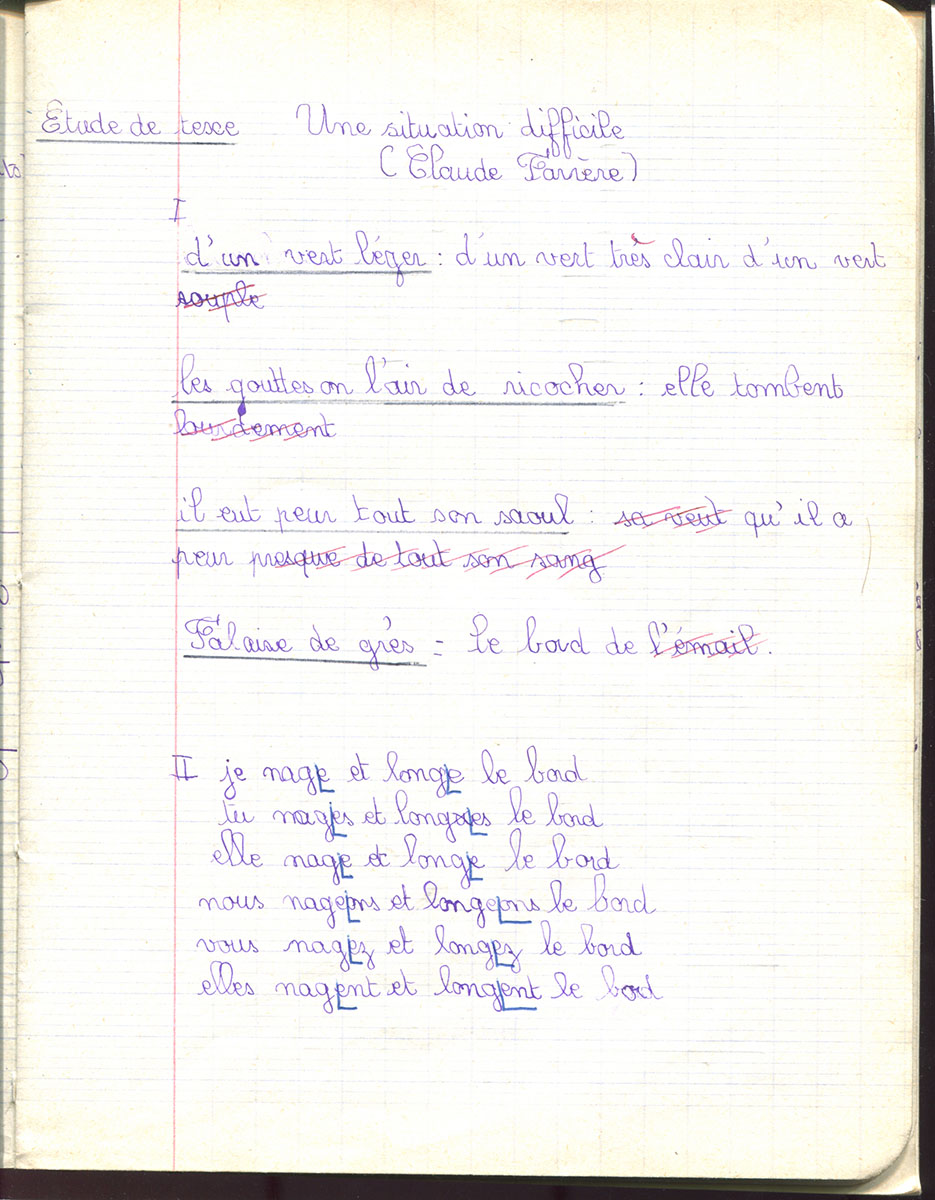 Etude de texce Une situation difficile
(Claude Farrère)
I
d'un vert léger : d'un vert très clair d'un vert
souple
les gouttes on l'air de ricocher : elle tombent
lourdement
il eut peur tout son saoul : sa veut qu'il a
peur presque de tout son sang
Falaise de grès = le bord de l'émail.
II je nage et longe le bord
tu nages et longes le bord
elle nage et longe le bord
nous nageons et longeons le bord
vous nagez et longez le bord
elles nagent et longent le bord